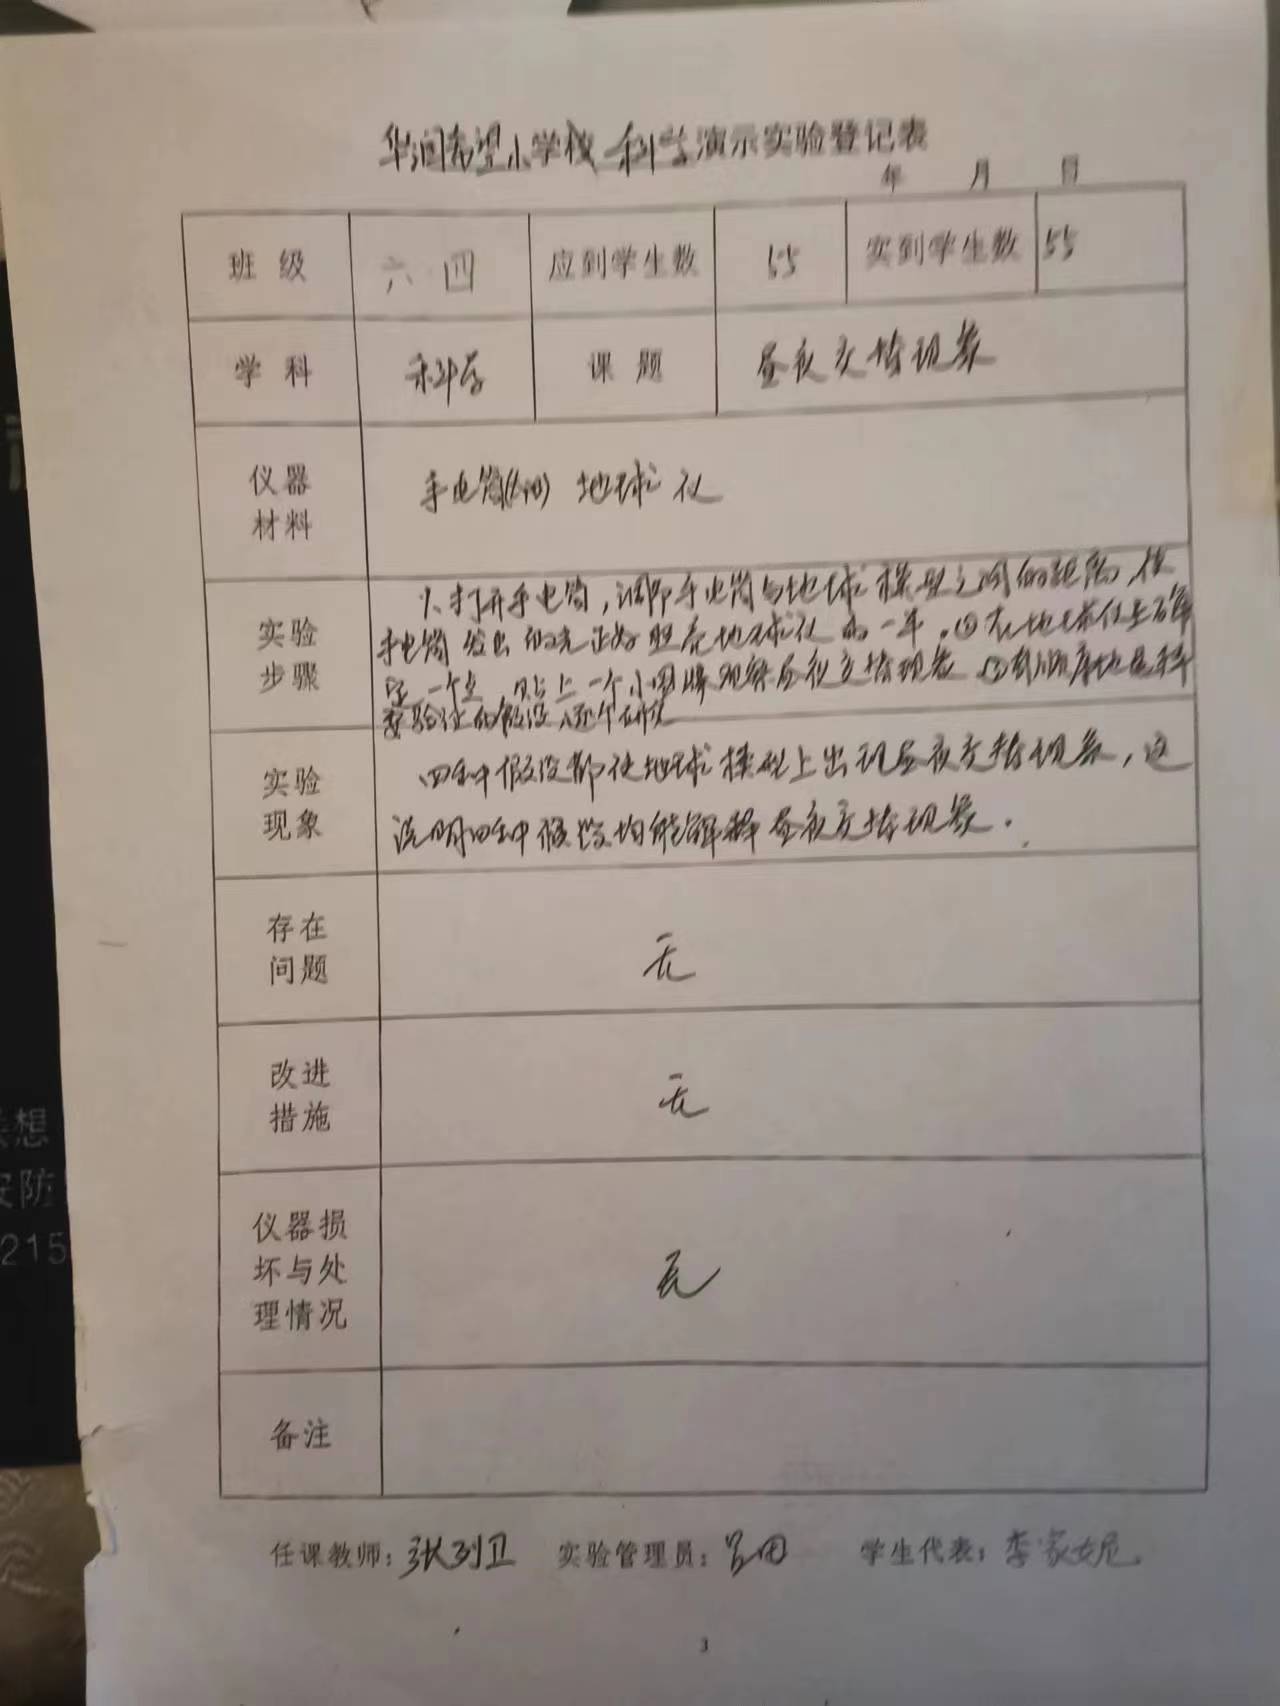 华润希望小学校 科学演示实验登记表
年 月 日
班级 六四 应到学生数 55 实到学生数 55
学科 科学 课题 昼夜交替现象
仪器材料 手电筒 地球仪
实验步骤
1、打开手电筒,调节手电筒与地球模型之间的距离,使
手电筒发出的光正好照亮地球仪的一半。②在地球仪上确
定一个点,贴上一个小图 观察昼夜交替现象 ③ 顺序地
要验证的假设,逐个研究
实验现象
四种假设都使地球模型上出现昼夜交替现象,这
说明四种假设均能解释昼夜交替现象.
存在问题 无
改进措施 无
仪器损坏与处理情况 无
备注
任课教师: 实验管理员:吕田 学生代表:李家妮
3
想
安防
215